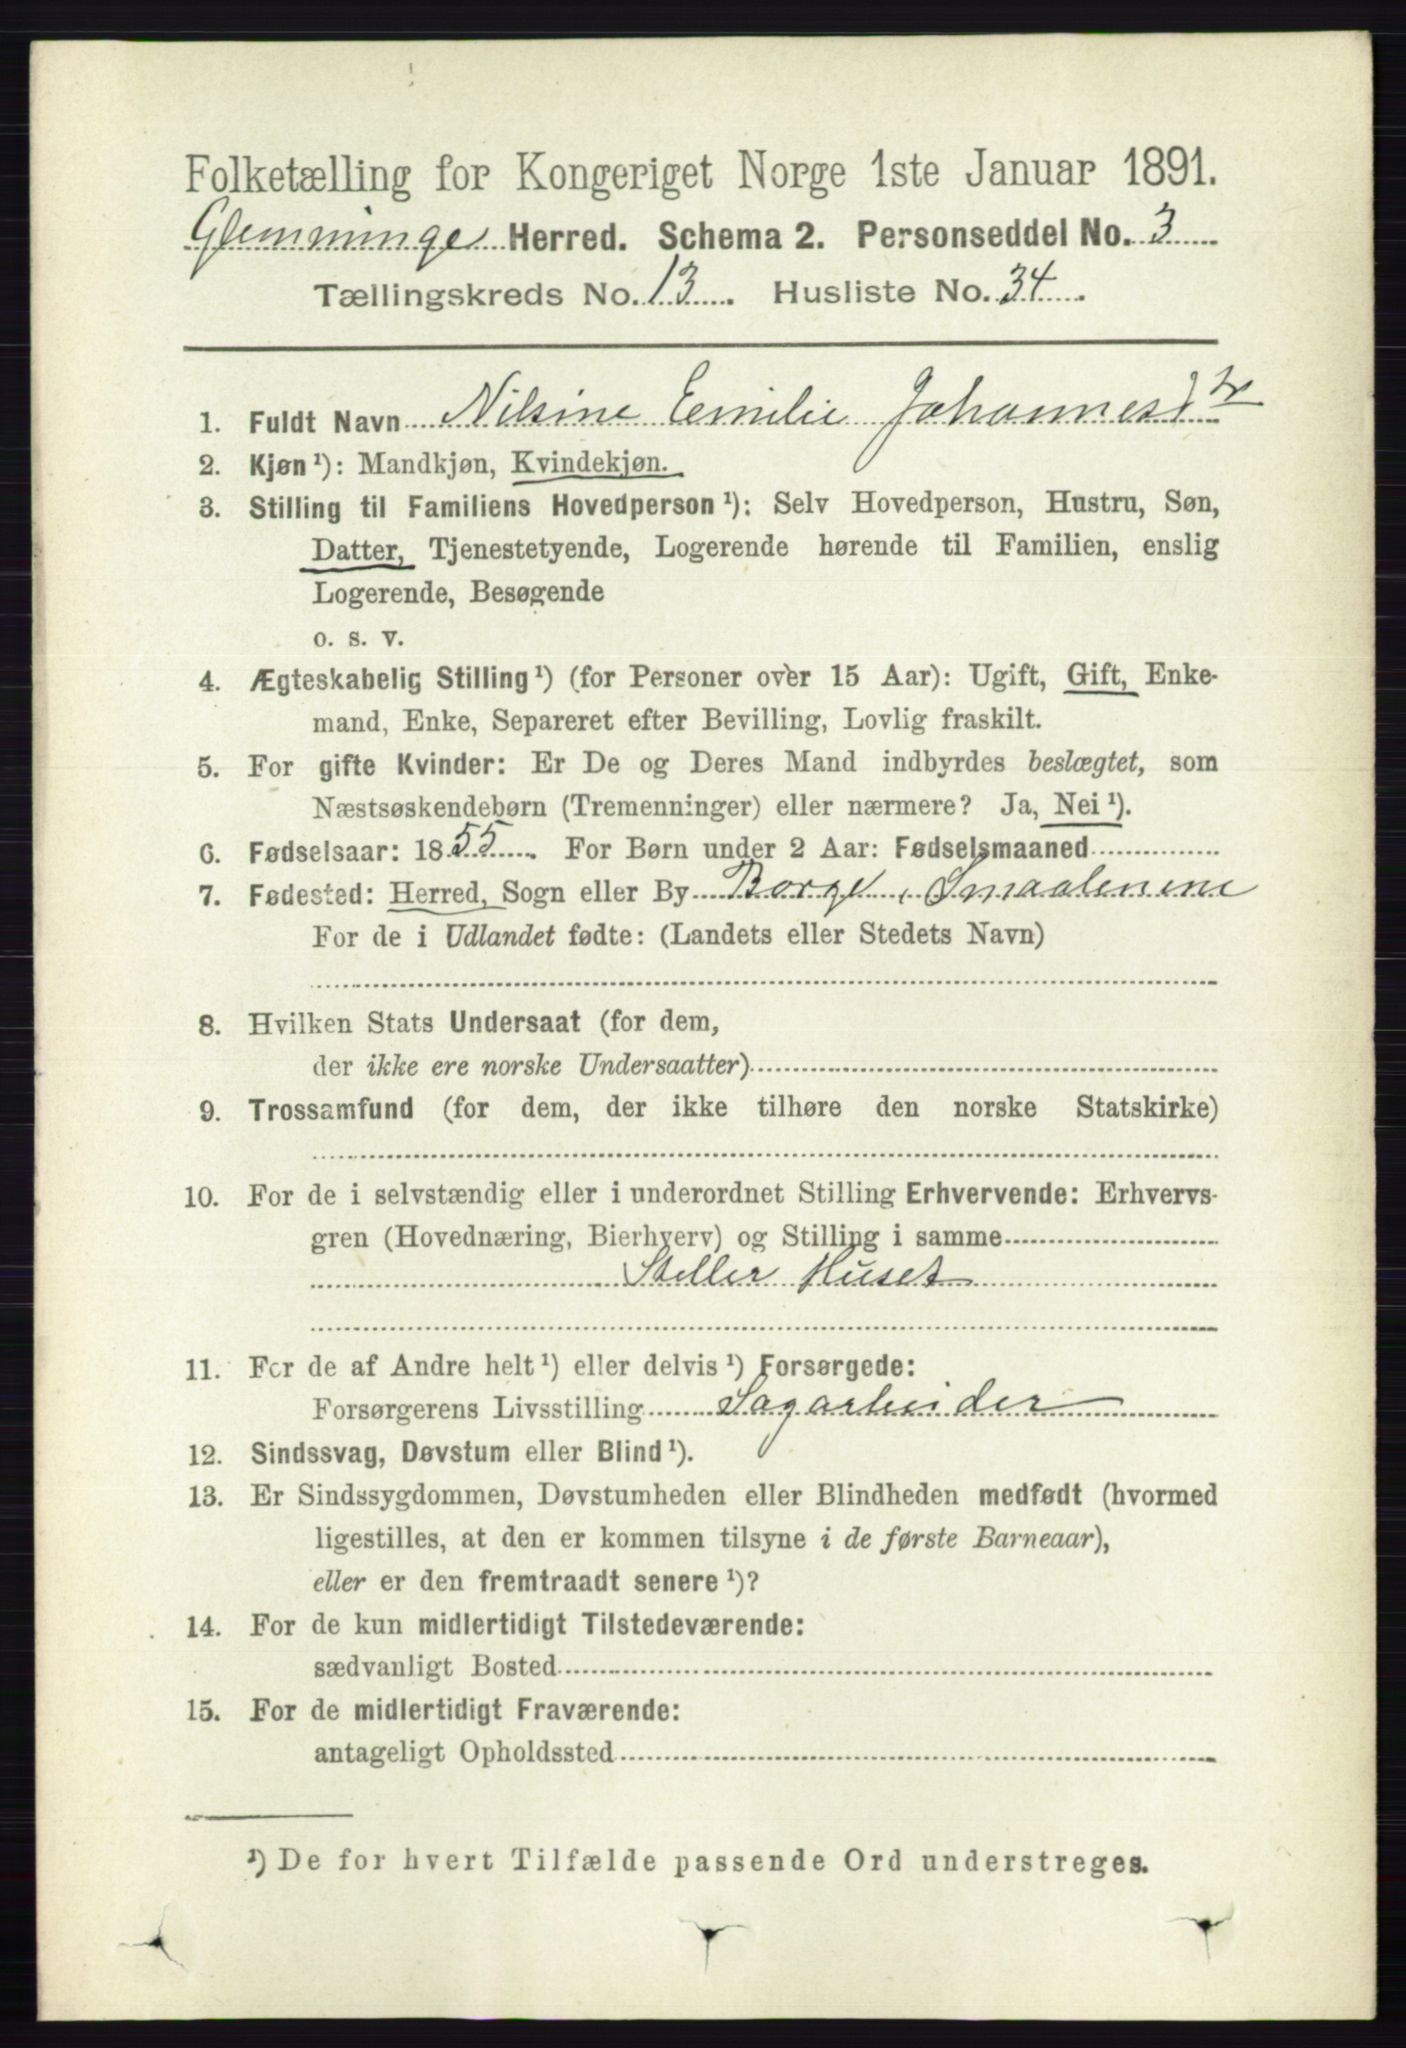 Folketælling for Kongeriget Norge 1ste Januar 1891.
Glemminge Herred. Schema 2. Personseddel No. 3
Tællingskreds No. 13. Husliste No. 34.
1. Fuldt Navn Nilsine Emilie Johannesdtr
2. Kjøn ¹): Mandkjøn, Kvindekjøn.
3. Stilling til Familiens Hovedperson ¹): Selv Hovedperson, Hustru, Søn,
Datter, Tjenestetyende, Logerende hørende til Familien, enslig
Logerende, Besøgende
o. s. v.
4. Ægteskabelig Stilling ¹) (for Personer over 15 Aar): Ugift, Gift, Enke-
mand, Enke, Separeret efter Bevilling, Lovlig fraskilt.
5. For gifte Kvinder: Er De og Deres Mand indbyrdes beslægtet, som
Næstsøskendebørn (Tremenninger) eller nærmere? Ja, Nei ¹).
6. Fødselsaar: 1855. For Børn under 2 Aar: Fødselsmaaned
7. Fødested: Herred, Sogn eller By Borge, Smaalenene
For de i Udlandet fødte: (Landets eller Stedets Navn)
8. Hvilken Stats Undersaat (for dem,
der ikke ere norske Undersaatter)
9. Trossamfund (for dem, der ikke tilhøre den norske Statskirke)
10. For de i selvstændig eller i underordnet Stilling Erhvervende: Erhvervs-
gren (Hovednæring, Bierhverv) og Stilling i samme
Steller Huset
11. For de af Andre helt ¹) eller delvis ¹) Forsørgede:
Forsørgerens Livsstilling Sagarbeider
12. Sindssvag, Døvstum eller Blind ¹).
13. Er Sindssygdommen, Døvstumheden eller Blindheden medfødt (hvormed
ligestilles, at den er kommen tilsyne i de første Barneaar),
eller er den fremtraadt senere ¹)?
14. For de kun midlertidigt Tilstedeværende:
sædvanligt Bosted
15. For de midlertidigt Fraværende:
antageligt Opholdssted
¹) De for hvert Tilfælde passende Ord understreges.